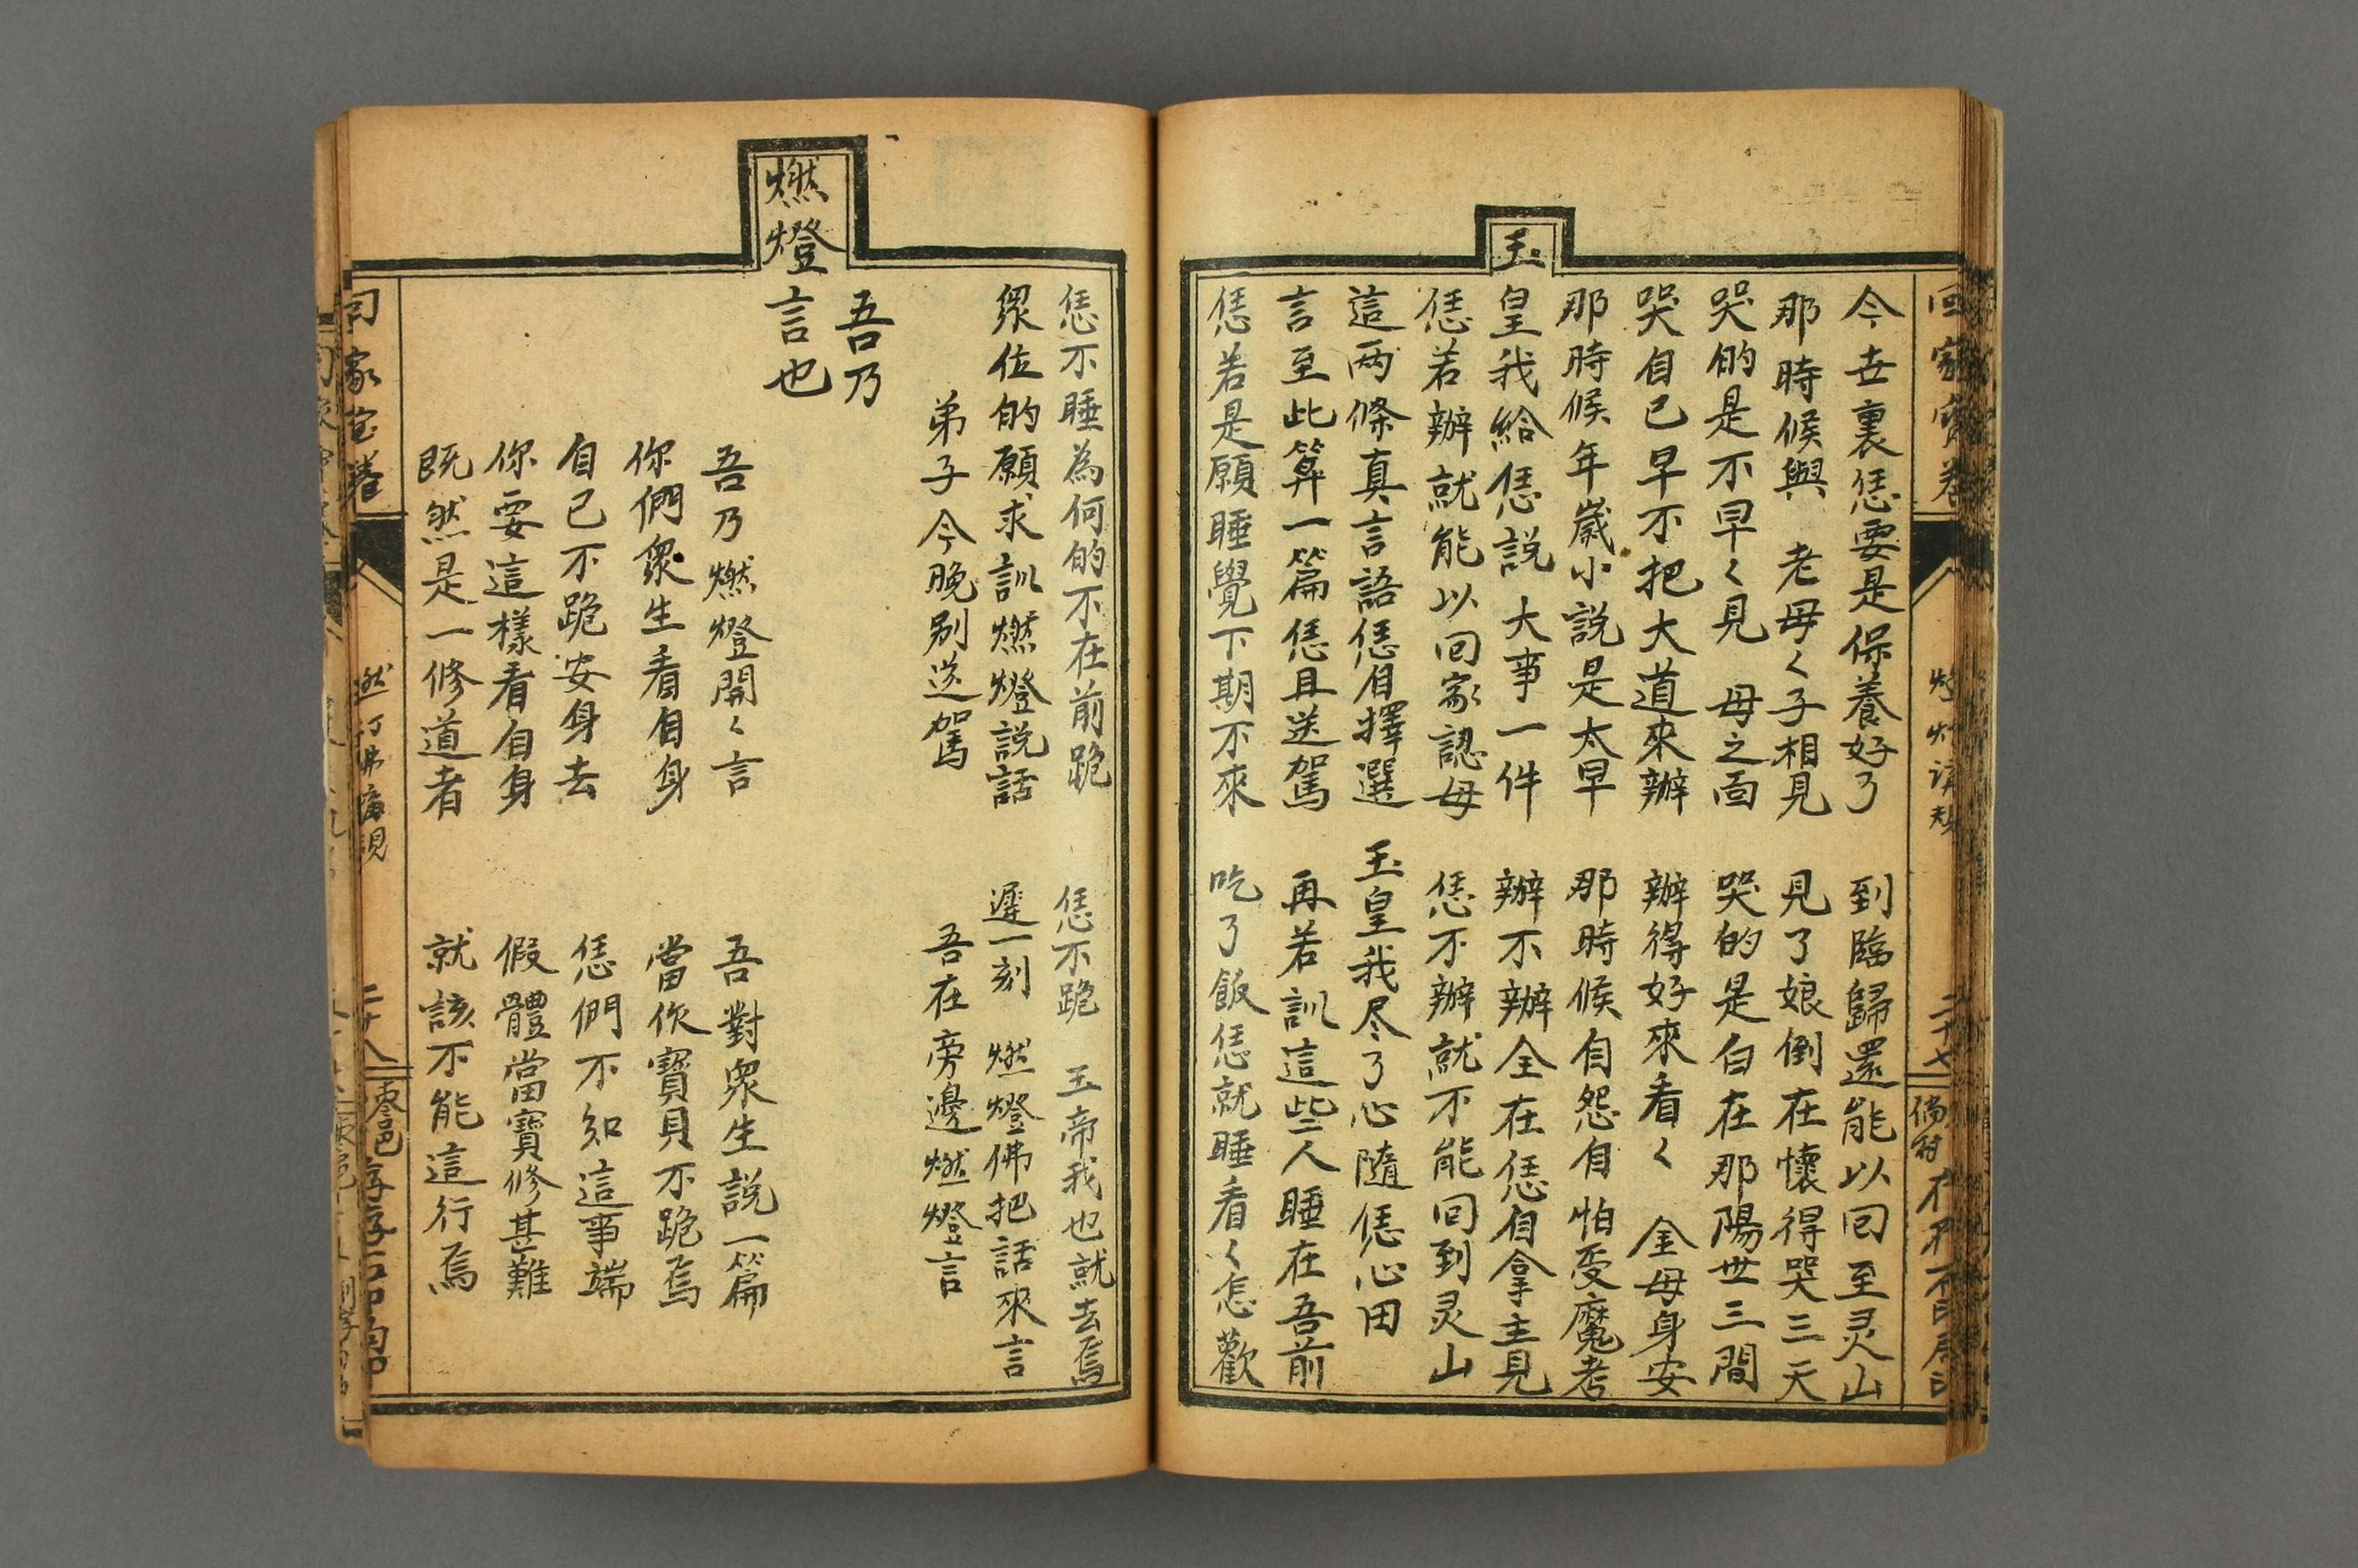 今世裏恁要是保養好了　到臨歸還能以回至灵山
那時候與　老母〻子相見　見了娘倒在懷得哭三天
哭的是不早〻見　母之面　哭的是白在那陽世三間
哭自己早不把大道來辦　辦得好來看〻　金母身安
那時候年歲小說是太早　那時候自怨自怕受魔考
玉皇我給恁說　大事一件　辦不辦全在恁自拿主見
恁若辦就能以回家認母　恁不辦就不能回到灵山
這两條真言語恁自擇選　玉皇我尽了心隨恁心田
言至此算一篇恁且送駕　再若訓這些人睡在吾前
恁若是願睡覺下期不來　吃了飯恁就睡看〻怎歡
恁不睡為何的不在前跪　恁不跪　玉帝我也就去焉
眾位的願求訓燃燈説話　遲一刻　燃燈佛把話來言
弟子今晚别送駕　吾在旁邊燃燈言
吾乃
燃燈言也
吾乃燃燈開〻言　吾對眾生説一篇
你們眾生看自身　當作寶貝不跪焉
自己不跪安身去　恁們不知這事端
你要這樣看自身　假體當寶修甚難
既然是一修道者　就該不能這行焉
回家寶卷
二十七
二十八